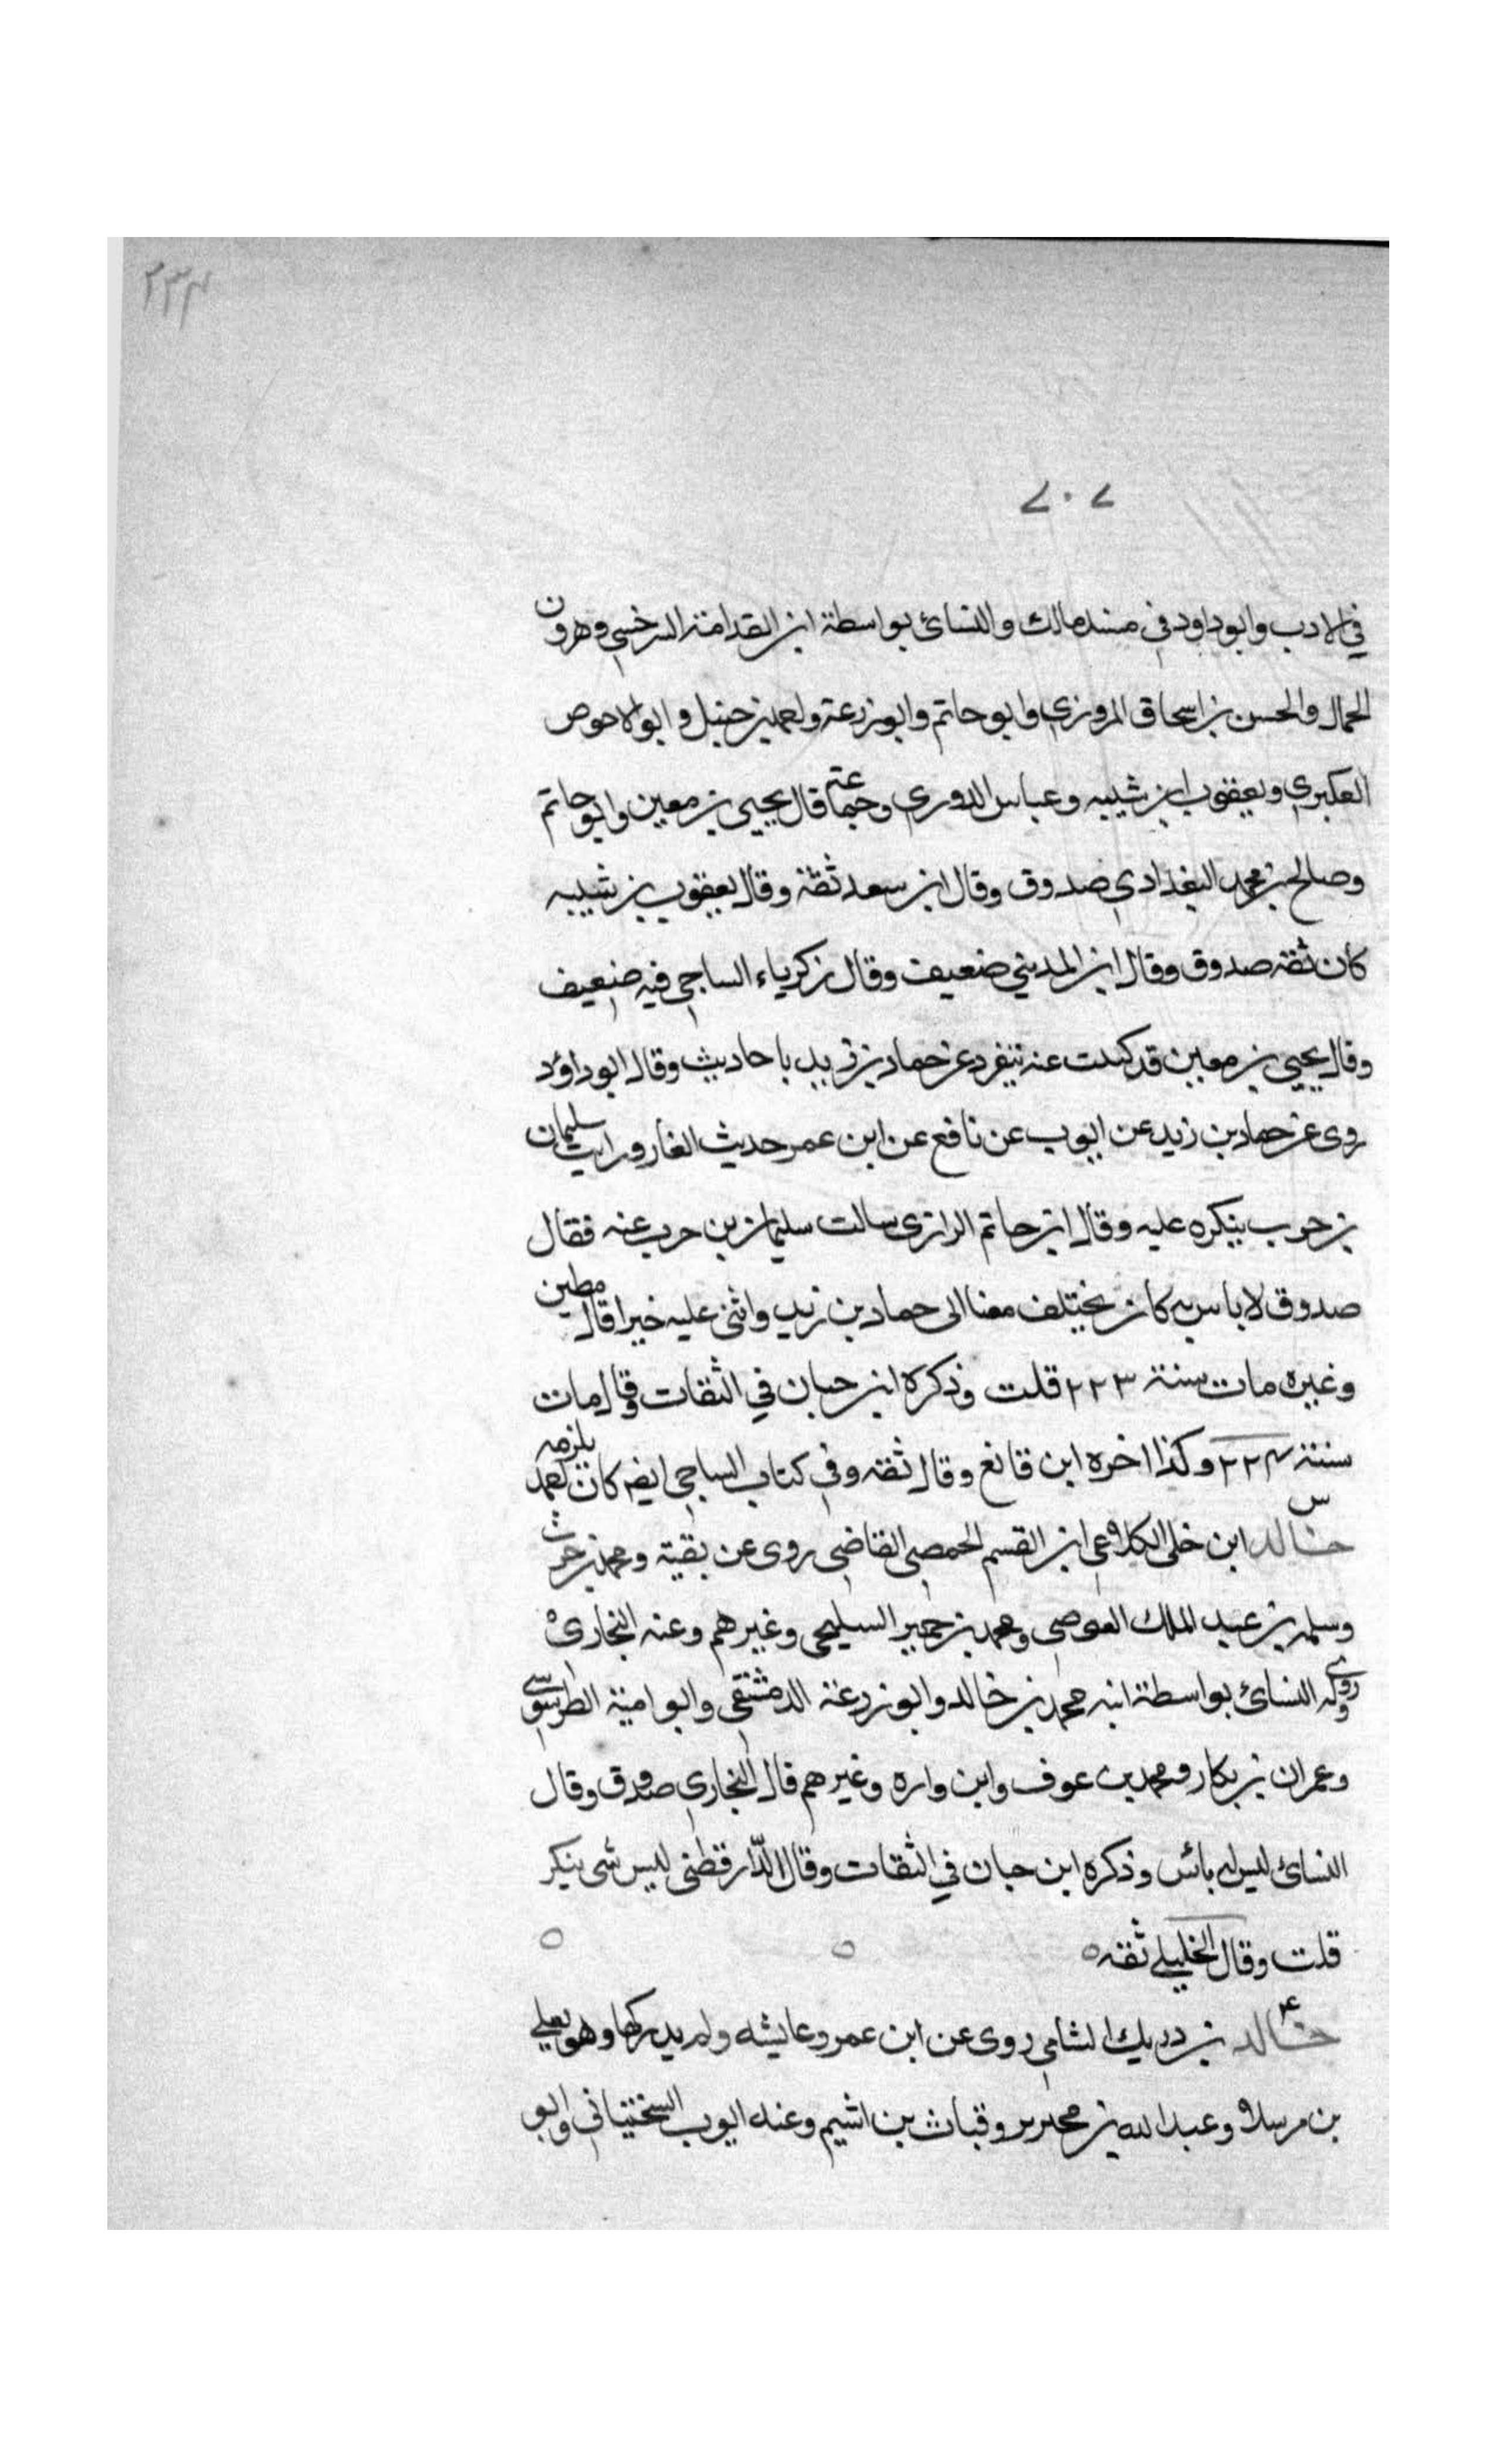 ٢٣٤
٧٠٧
في الادب وابوداود في مسند مالك والنسائ بواسطة ابن القدامة السرخسي وهرون
الحمال والحسن بن اسحاق المروزي وابو حاتم وابوزرعة واحمد بن حنبل وابو الاحوص
العكبري ويعقوب ابن شيبه وعباس الدوري وجماعة قال يحيى بن معين وابو حاتم
وصالح بن محمد البغدادي صدوق وقال ابن سعد ثقة وقال يعقوب بن شيبه
كان ثقه صدوق وقال ابن المديني ضعيف وقال زكرياء الساجي فيه ضعيف
وقال يحيى بن معين قد كتبت عنه تنفرد عن حماد بن زيد باحاديث وقال ابوداؤد
روى عن حماد بن زيد عن ايوب عن نافع عن ابن عمر حديث الغار ورايت سليمان
بن حرب ينكره عليه وقال ابن حاتم الرازى سالت سليمان بن حرب عنه فقال
صدوق لا باس به كان يختلف معنا الى حماد بن زيد واثنى عليه خيرا قال مطين
وغيره مات سنة ٢٢٣ قلت وذكره ابن حبان في الثقات وقال مات
سنة ٢٢٤ وكذا اخره ابن قانع وقال ثقه وفي كتاب الساجي ايضا كان احمد يلزمه
س
خالد ابن خلى الكلاعي ابن القسم الحمصي القاضي روى عن بقية ومحمد بن حرب
وسلمه بن عبد الملك العوصى ومحمد بن حمير السليحى وغيرهم وعنه البخارى
وروى له النسائ بواسطة ابنه محمد بن خالد وابو زرعة الدمشقى وابو امية الطرسوسي
وعمران بن بكار ومحمد بن عوف وابن واره وغيرهم قال البخاري صدوق وقال
النسائ ليس له باس وذكره ابن حبان في الثقات وقال الدارقطنى ليس شى ينكر
قلت وقال الخليلي ثقه ٥ ٥ ٥
ع
خالد بن دريك الشامي روى عن ابن عمر وعايشه ولم يدركها وهو يعلى
بن مرسلا وعبد الله بن محيريز وقباث بن اشيم وعنه ايوب السختيانى وابو